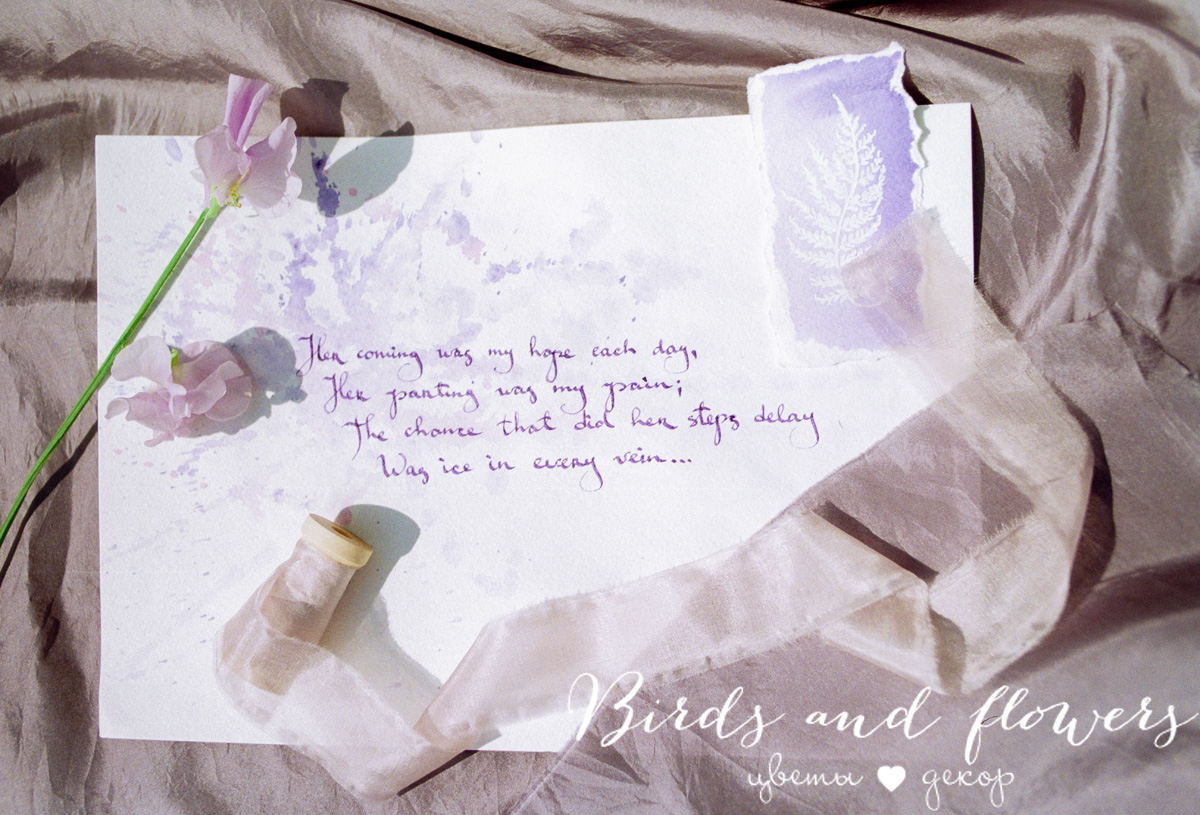 Her coming was my hope each day,
Her parting was my pain;
The chance that did her steps delay
Was ice in every vein...
Birds and flowers
цветы ♥ декор